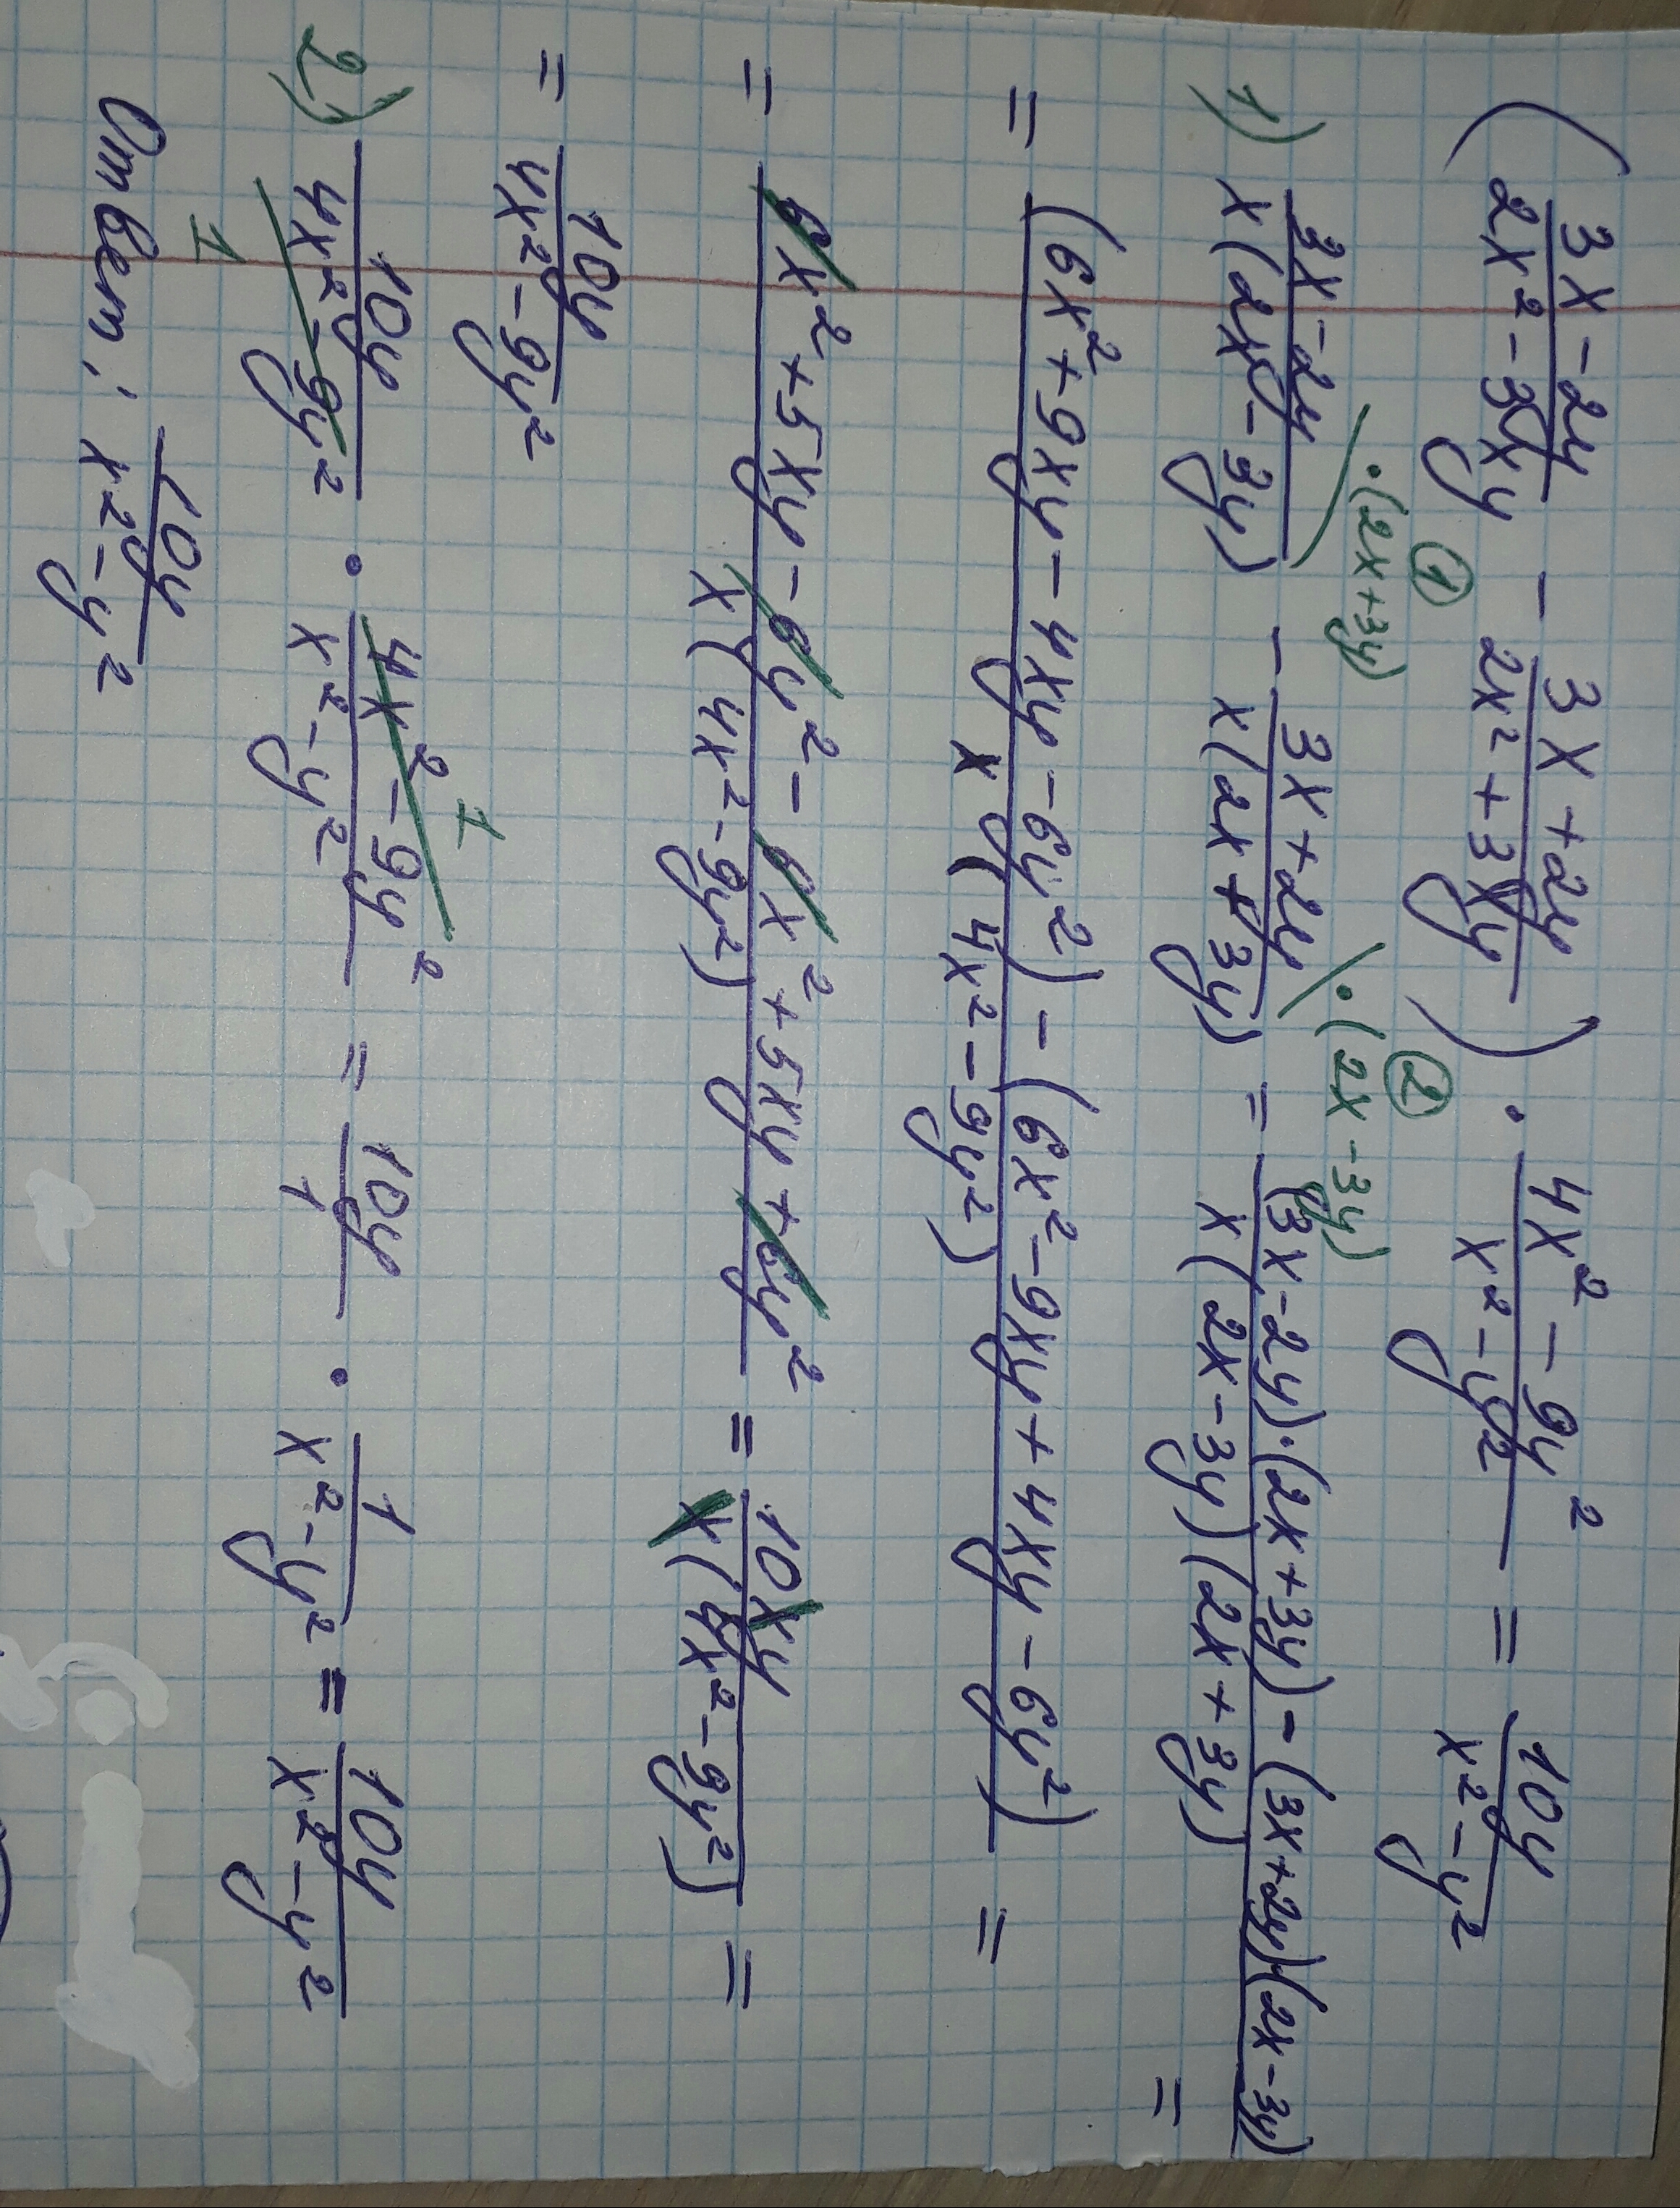 ( (3x-2y)/(2x²-3xy) - (3x+2y)/(2x²+3xy) ) · (4x²-9y²)/(x²-y²) = 10y/(x²-y²)
① ②
·(2x+3y) ·(2x-3y)
1) (3x-2y)/(x(2x-3y)) - (3x+2y)/(x(2x+3y)) = ((3x-2y)·(2x+3y)-(3x+2y)(2x-3y))/(x(2x-3y)(2x+3y)) =
= ((6x²+9xy-4xy-6y²)-(6x²-9xy+4xy-6y²))/(x(4x²-9y²)) =
= (6x²+5xy-6y²-6x²+5xy+6y²)/(x(4x²-9y²)) = 10xy/(x(4x²-9y²)) =
= 10y/(4x²-9y²)
2) 10y/(4x²-9y²) · (4x²-9y²)/(x²-y²) = 10y/1 · 1/(x²-y²) = 10y/(x²-y²)
1 1
Ответ: 10y/(x²-y²)